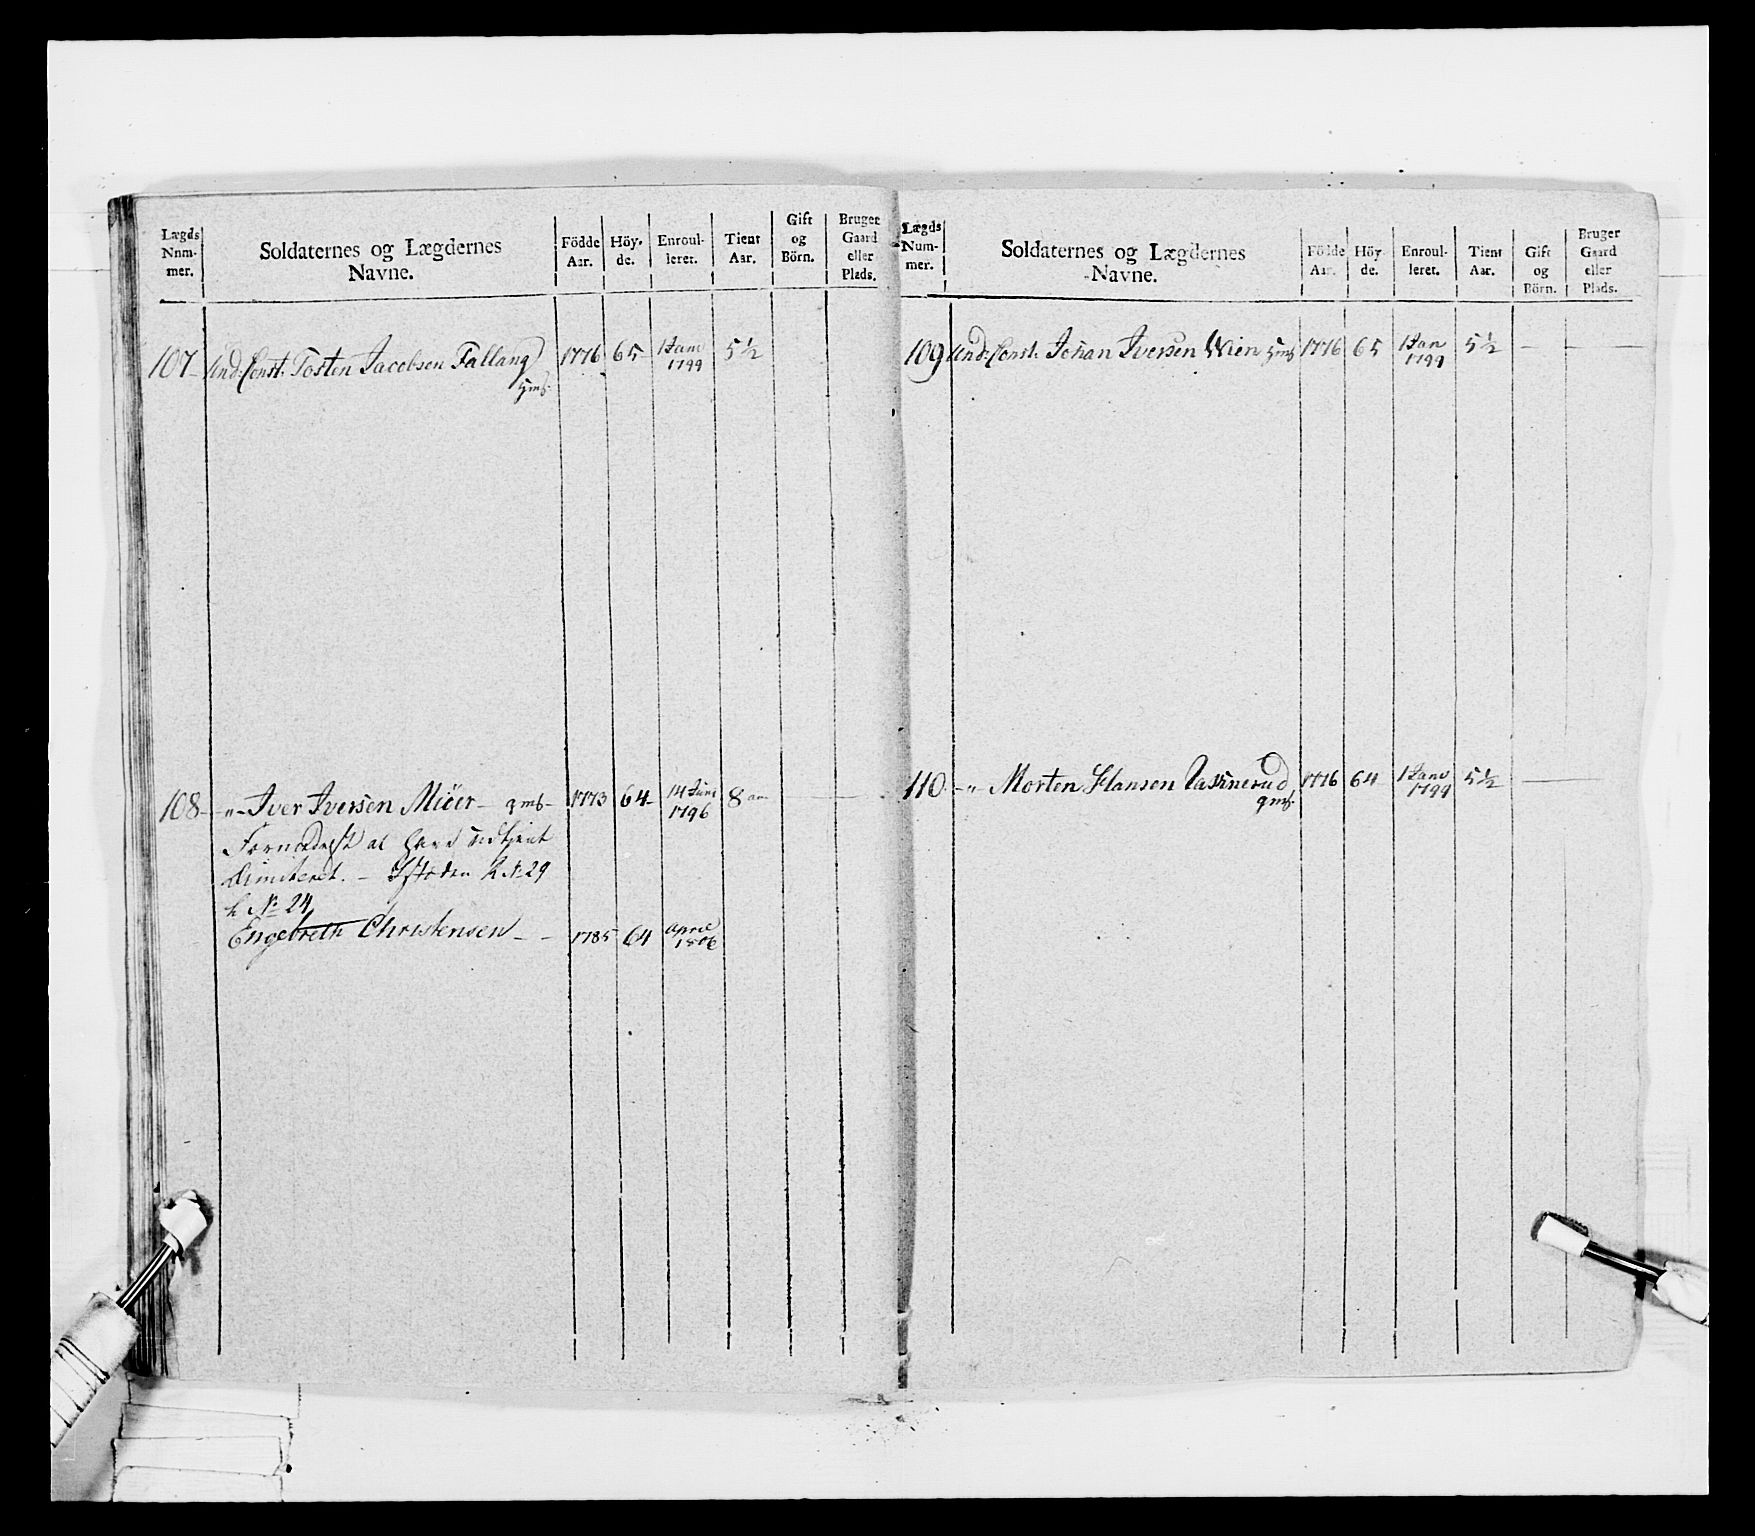 Lægds Nnm- mer.
Soldaternes og Lægdernes Navne.
Födde Aar.
Höy- de.
Enroul- leret.
Tient Aar.
Gift og Börn.
Bruger Gaard eller Plads.
107 Und: Const: Tosten Jacobsen Fallang 1776 65 1 Janv 1799 5 1/2
108 " Iver Iversen Miöer 1773 64 14 Juni 1796 8
at have udtient
dimiteret. No 29
No 24
Engebreth Christensen 1785 64 April 1806
Lægds Num- mer.
Soldaternes og Lægdernes Navne.
Födde Aar.
Höy- de.
Enroul- leret.
Tient Aar.
Gift og Börn.
Bruger Gaard eller Plads.
109 Und: Const: Johan Iversen Wien 1776 65 1 Jan 1799 5 1/2
110 " Morten Hansen 1776 64 1 Janv 1799 5 1/2